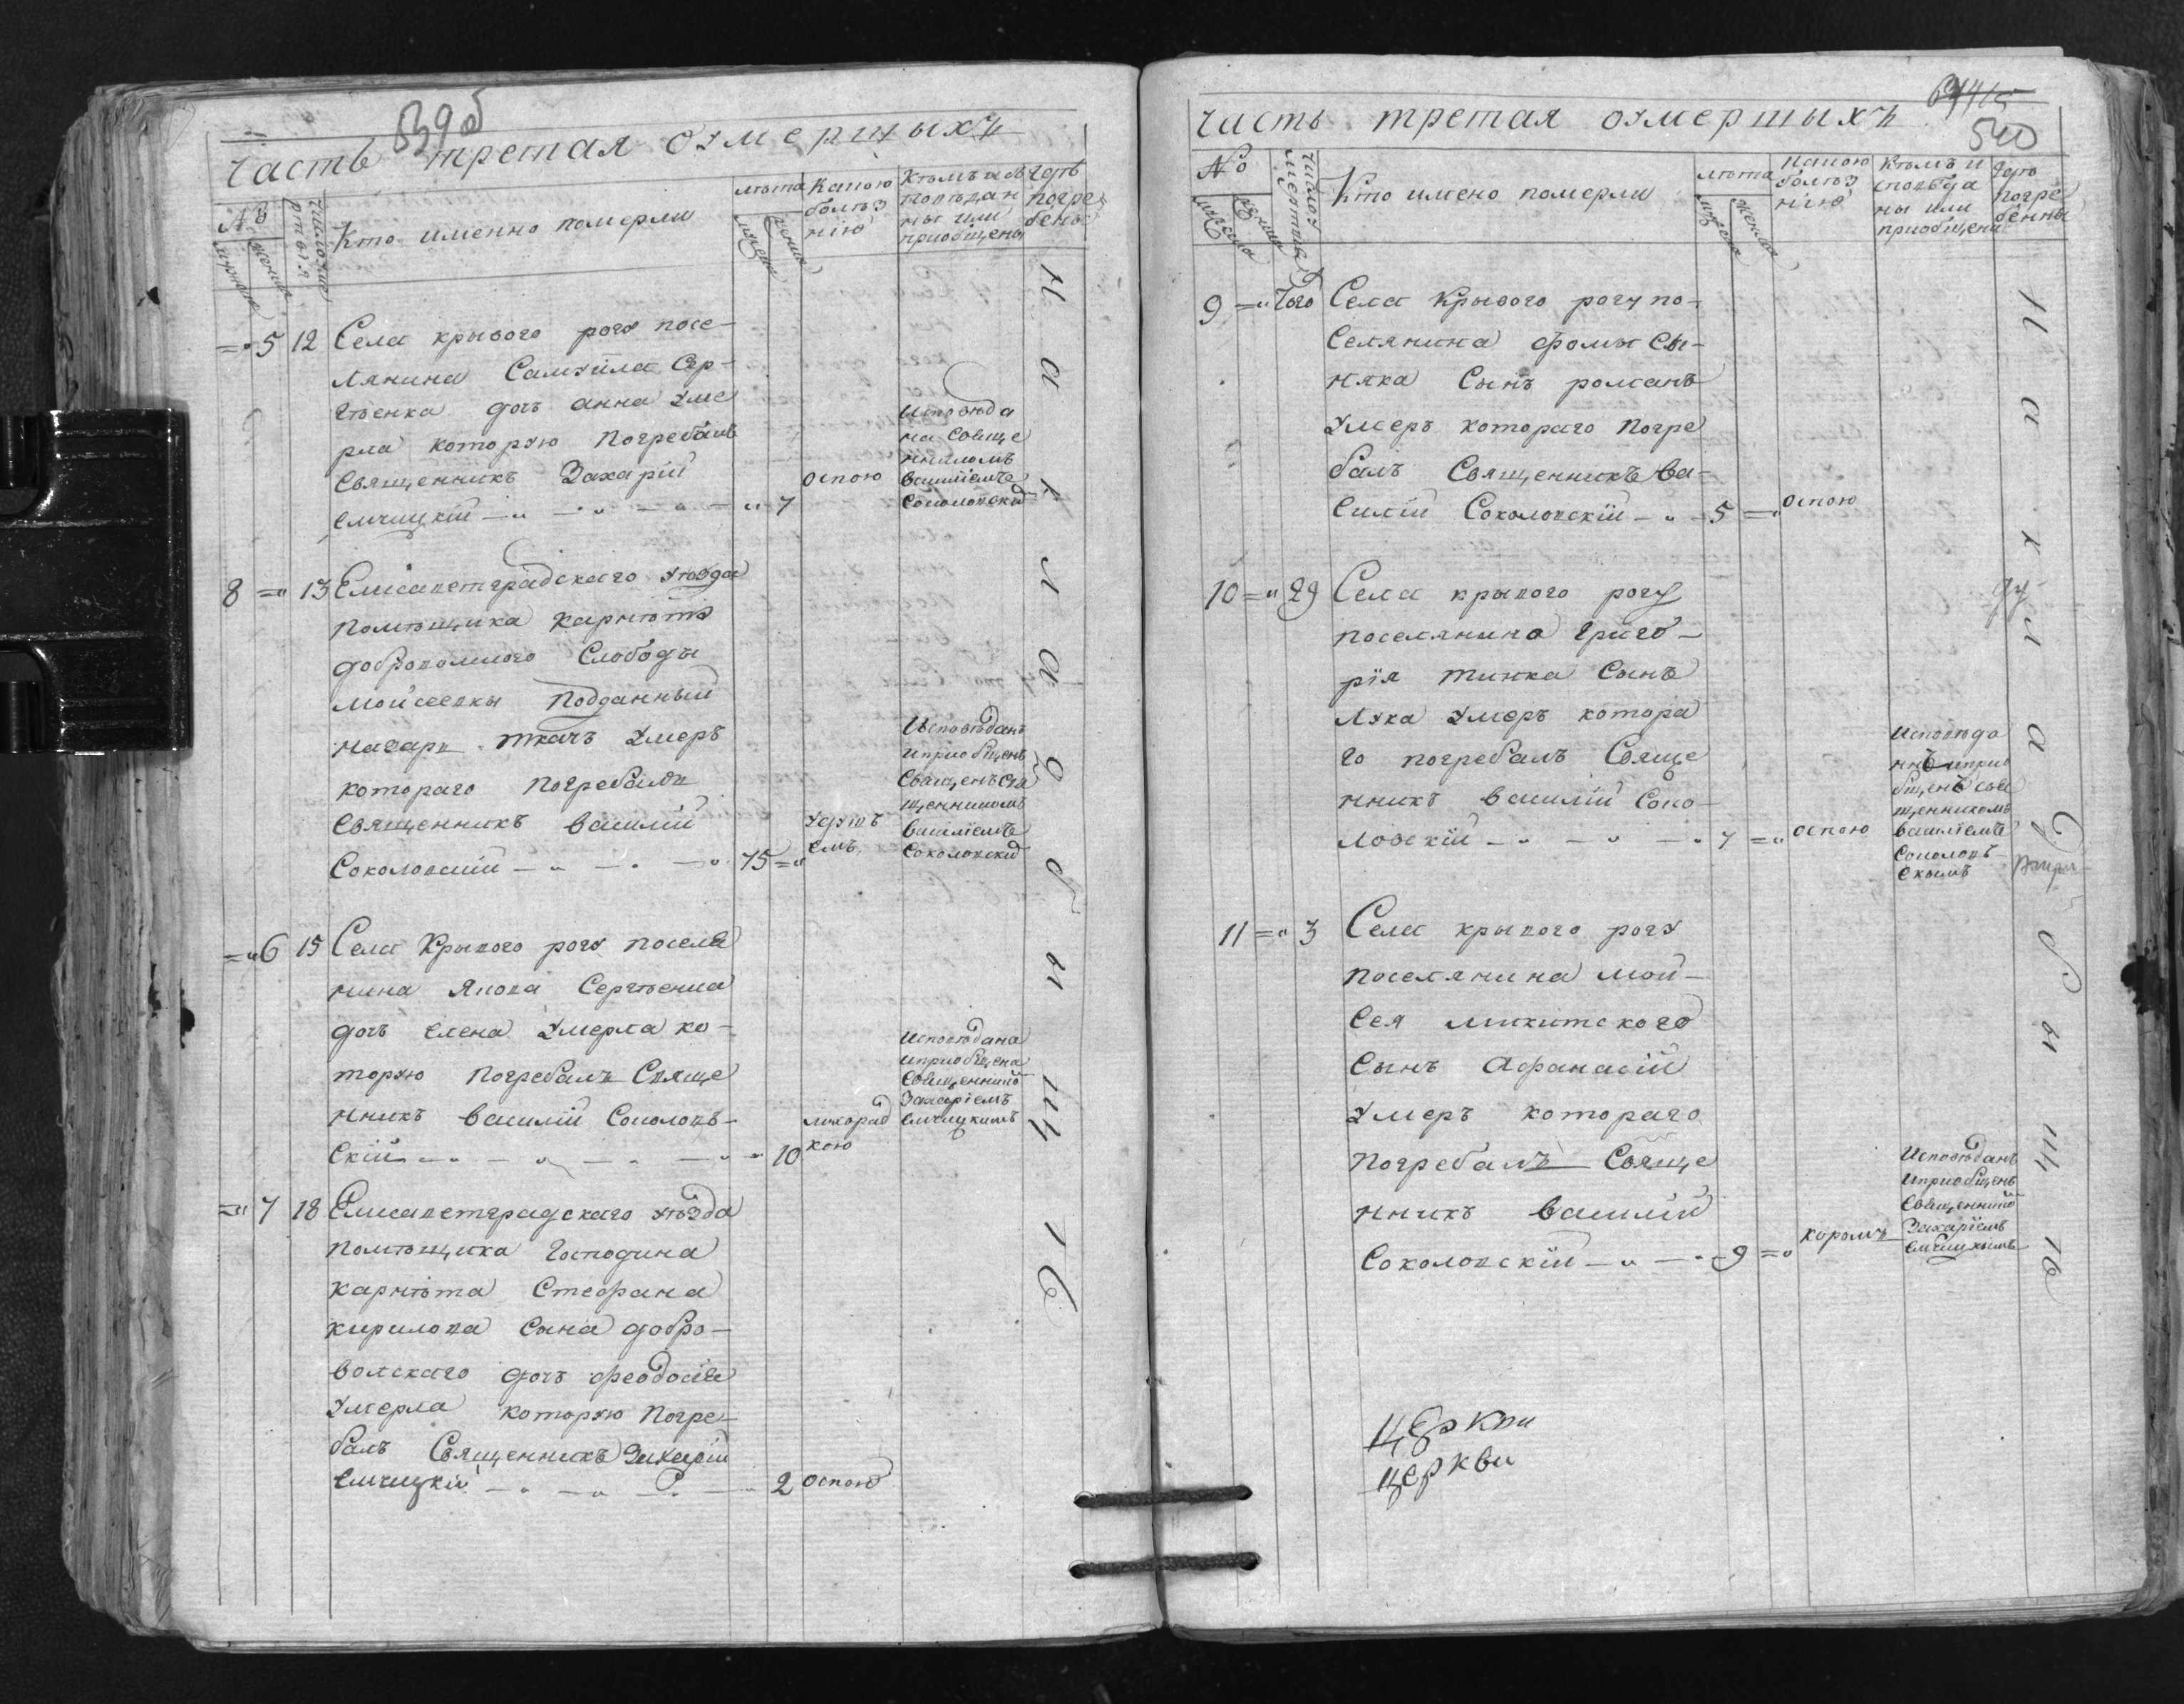 539об
Часть третая оумершыхъ
№
Кто именно померли
лѣта
Какою болѣз нію
Кѣмъ исповѣдан ны или приобщены
Гдѣ погре бены
=" 5 12 Села крывого рогу посе-
лянина Самуила Сер-
гѣенка дочь анна уме
рла которую погребалъ
Священникъ Захарій
Емчицкій — " — " — " — " 7
оспою
Исповѣда
на Свяще
нникомъ
василіемъ
Соколовскі
8 =" 13 Елисаветградского уѣзда
помѣщика карнѣта
доброволского Слободы
мойсеевки подданный
назаръ ткачъ умеръ
котораго погребалъ
Священникъ василій
Соколовскій — " — " — " 75 ="
Исповѣданъ
и приобщенъ
василіемъ
Соколовскі
=" 6 15 Села Крывого рогу поселя
нина Якова Сергѣенка
дочь елена умерла ко-
торую погребалъ Свяще
нникъ василій Соколовъ-
скій — " — " — " — " 10
лихорад
кою
Исповѣдана
и приобщена
Священнико
Захаріемъ
Емчицкимъ
=" 7 18 Елисаветградскаго уѣзда
помѣщика Господина
карнѣта Стефана
кирилова сына добро-
волскаго дочь феодосія
умерла которую погре-
балъ Священникъ Захарій
Емчицкій — " — " — " 2 оспою
На кладбищѣ
540
Часть третая оумершыхъ
№
Кто имено померли
лѣта
Какою болѣз нію
Кѣмъ и сповѣда ны или приобщени
Гдѣ погре бенны
9 =" того Села Крывого рогу по-
селянина фомы Сы-
няка Сынъ романъ
умеръ котораго погре
балъ Священникъ ва-
силій Соколовскій — " — 5 =" оспою
10 =" 29 Села крывого рогу
поселянина григо-
рія тинка Сынъ
лука умеръ котора
го погребалъ Свяще
нникъ василій Соко-
ловскій — " — " — " 7 =" оспою
Исповѣда
нъ и прио
бщенъ свя
щенникомъ
василіемъ
Соколовъ-
скимъ
11 =" 3 Села крывого рогу
поселянина мой-
сея микитского
сынъ Афанасій
умеръ котораго
погребалъ Свяще
нникъ василій
Соколовскій — " — " 9 ="
коромъ
Исповѣданъ
и приобщенъ
Священнико
Захаріемъ
Емчицкимъ
На кладбищѣ
церкви
церкви